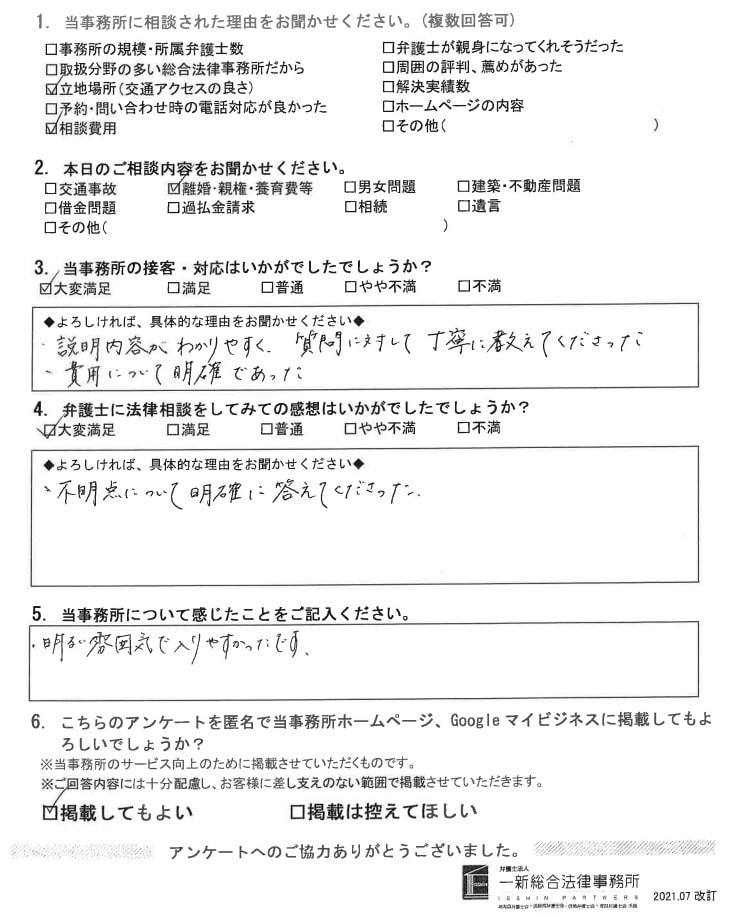 1. 当事務所に相談された理由をお聞かせください。(複数回答可)
□事務所の規模・所属弁護士数 □弁護士が親身になってくれそうだった
□取扱分野の多い総合法律事務所だから □周囲の評判、薦めがあった
☑立地場所(交通アクセスの良さ) □解決実績数
□予約・問い合わせ時の電話対応が良かった □ホームページの内容
☑相談費用 □その他( )
2. 本日のご相談内容をお聞かせください。
□交通事故 ☑離婚・親権・養育費等 □男女問題 □建築・不動産問題
□借金問題 □過払金請求 □相続 □遺言
□その他( )
3. 当事務所の接客・対応はいかがでしたでしょうか?
☑大変満足 □満足 □普通 □やや不満 □不満
◆よろしければ、具体的な理由をお聞かせください◆
・説明内容がわかりやすく、質問に対して丁寧に教えてくださった
・費用について明確であった
4. 弁護士に法律相談をしてみての感想はいかがでしたでしょうか?
☑大変満足 □満足 □普通 □やや不満 □不満
◆よろしければ、具体的な理由をお聞かせください◆
・不明点について明確に答えてくださった.
5. 当事務所について感じたことをご記入ください。
・明るい雰囲気で入りやすかったです、
6. こちらのアンケートを匿名で当事務所ホームページ、Googleマイビジネスに掲載してもよ
ろしいでしょうか?
※当事務所のサービス向上のために掲載させていただくものです。
※ご回答内容には十分配慮し、お客様に差し支えのない範囲で掲載させていただきます。
☑掲載してもよい □掲載は控えてほしい
アンケートへのご協力ありがとうございました。
弁護士法人
一新総合法律事務所
ISSHIN PARTNERS
2021.07 改訂